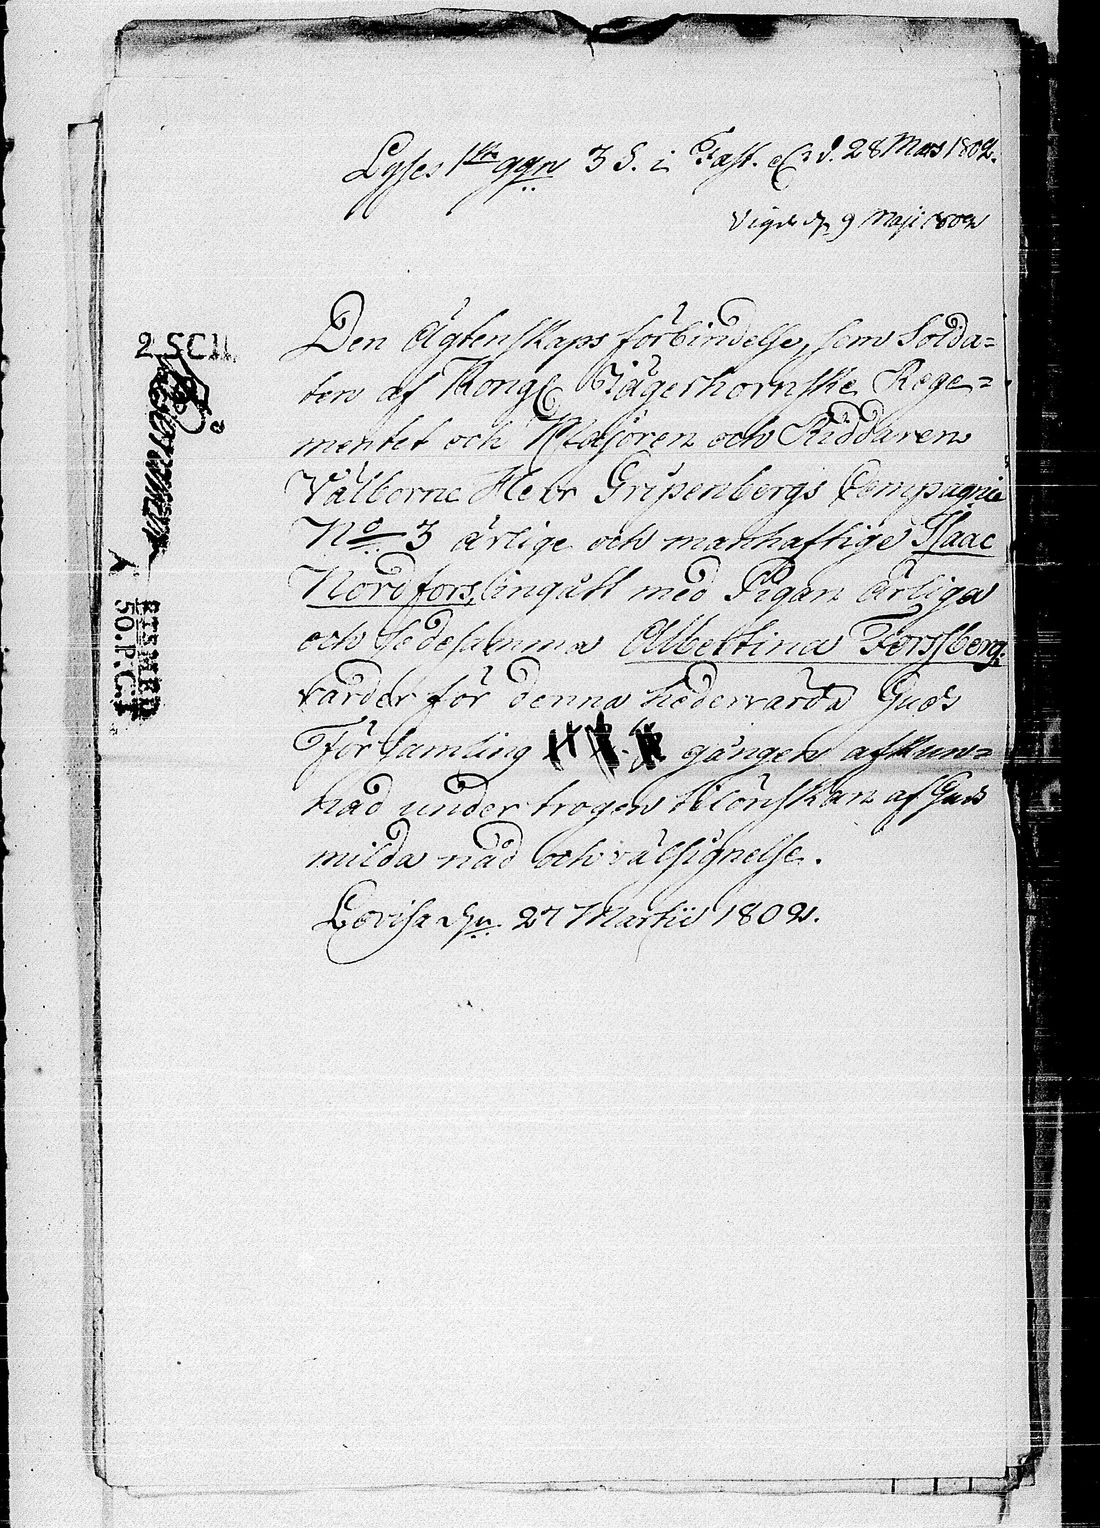 Lyses 1sta ggn 3 S. i Fast. d. 28 Mars 1802.
Vigde d. 9 Maji 1802
2 SCH.
Den Ägtenskaps förbindelse, som Solda=
ten af Kongl Jägerhornske Rege=
mentet och Majoren och Riddaren
Välborne Herr Gripenbergs Compagnie
No 3 ärlige och manhaftige Isaac
Nordfors, ingått med Pigan ärliga
och sedesamma Albertina Forssberg.
varder för denna hedervärda Guds
Församling gången afkun=
nad under trogen tilönskan af Guds
milda nåd och välsignelse.
Lovisa d. 27 Martii 1802.